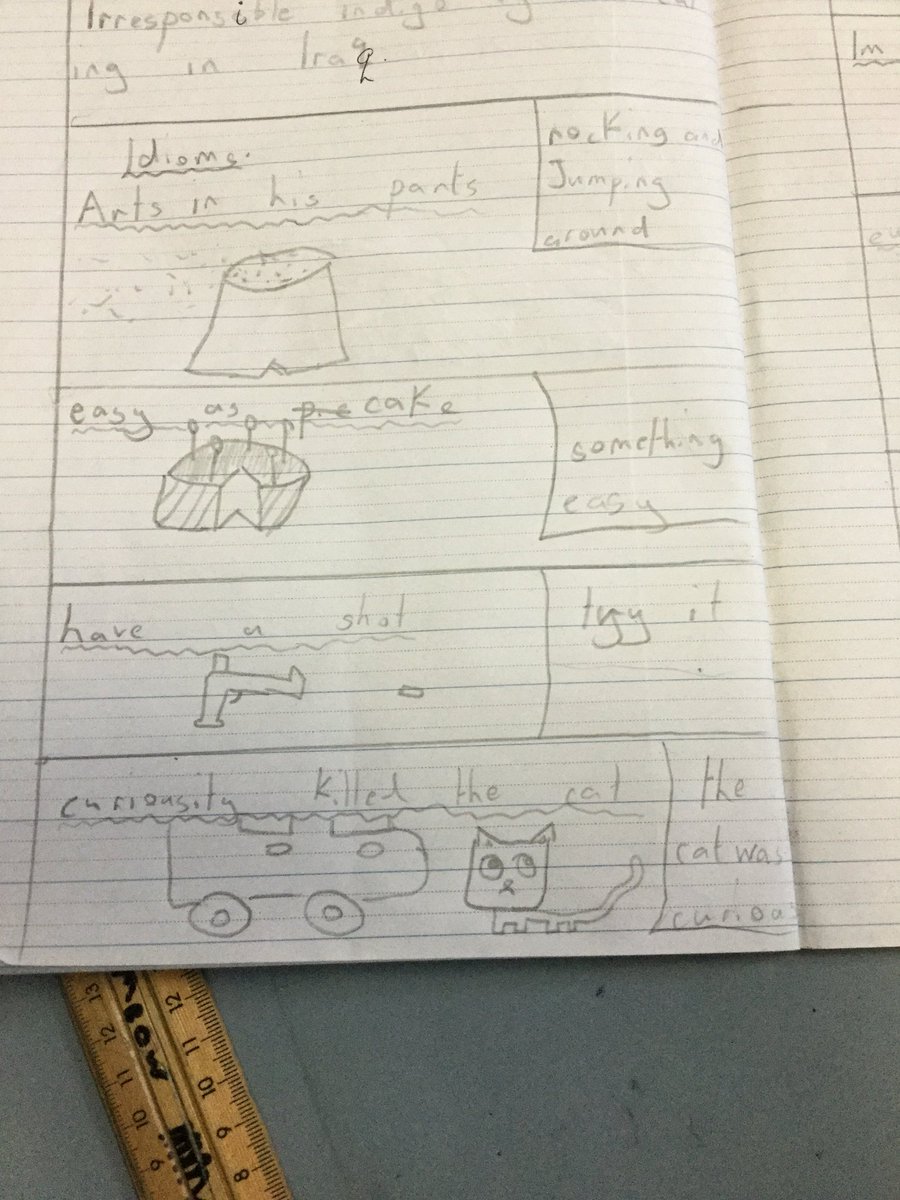 Irresponsible
ing in Iraq.
Idioms.
Arts in his pants
rocking and
Jumping
around
easy as pie cake
something
easy
have a shot
tyy it
curiousity killed the cat
the
cat was
curiou
Im
13 12 11 10 9
12 11 10 9 8